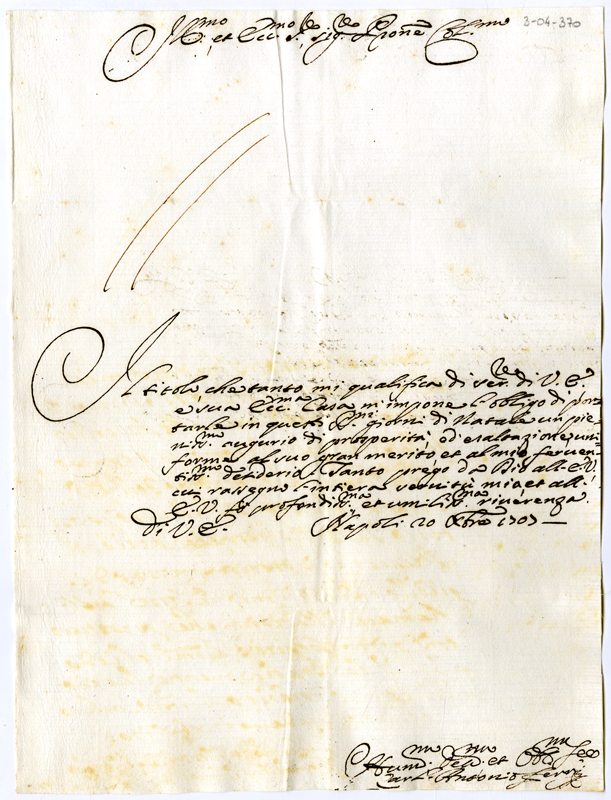 3-04-370
Ill.mo et Ecc.mo S.re Sig.re P.rone Col.mo
Il titolo, che tanto mi qualifica di ser.re di V. E.
e sua Ecc.ma Casa m'impone l'obligo di por
tarle in questi S.mi giorni di Natale un pie-
niss.mo augurio di prosperità, ed esaltazione uni-
forme al suo gran merito et al mio ferven-
tiss.mo desiderio. Tanto prego da Dio all' E. V.
cui rassegno l'intiera servitù mia, et all'
E. V. fò profondiss.ma, et umiliss.ma riverenza.
Di V. E. Napoli 20 Xbre 1707
Hum.mo Dev.mo et Obb.mo Ser.
Antonio